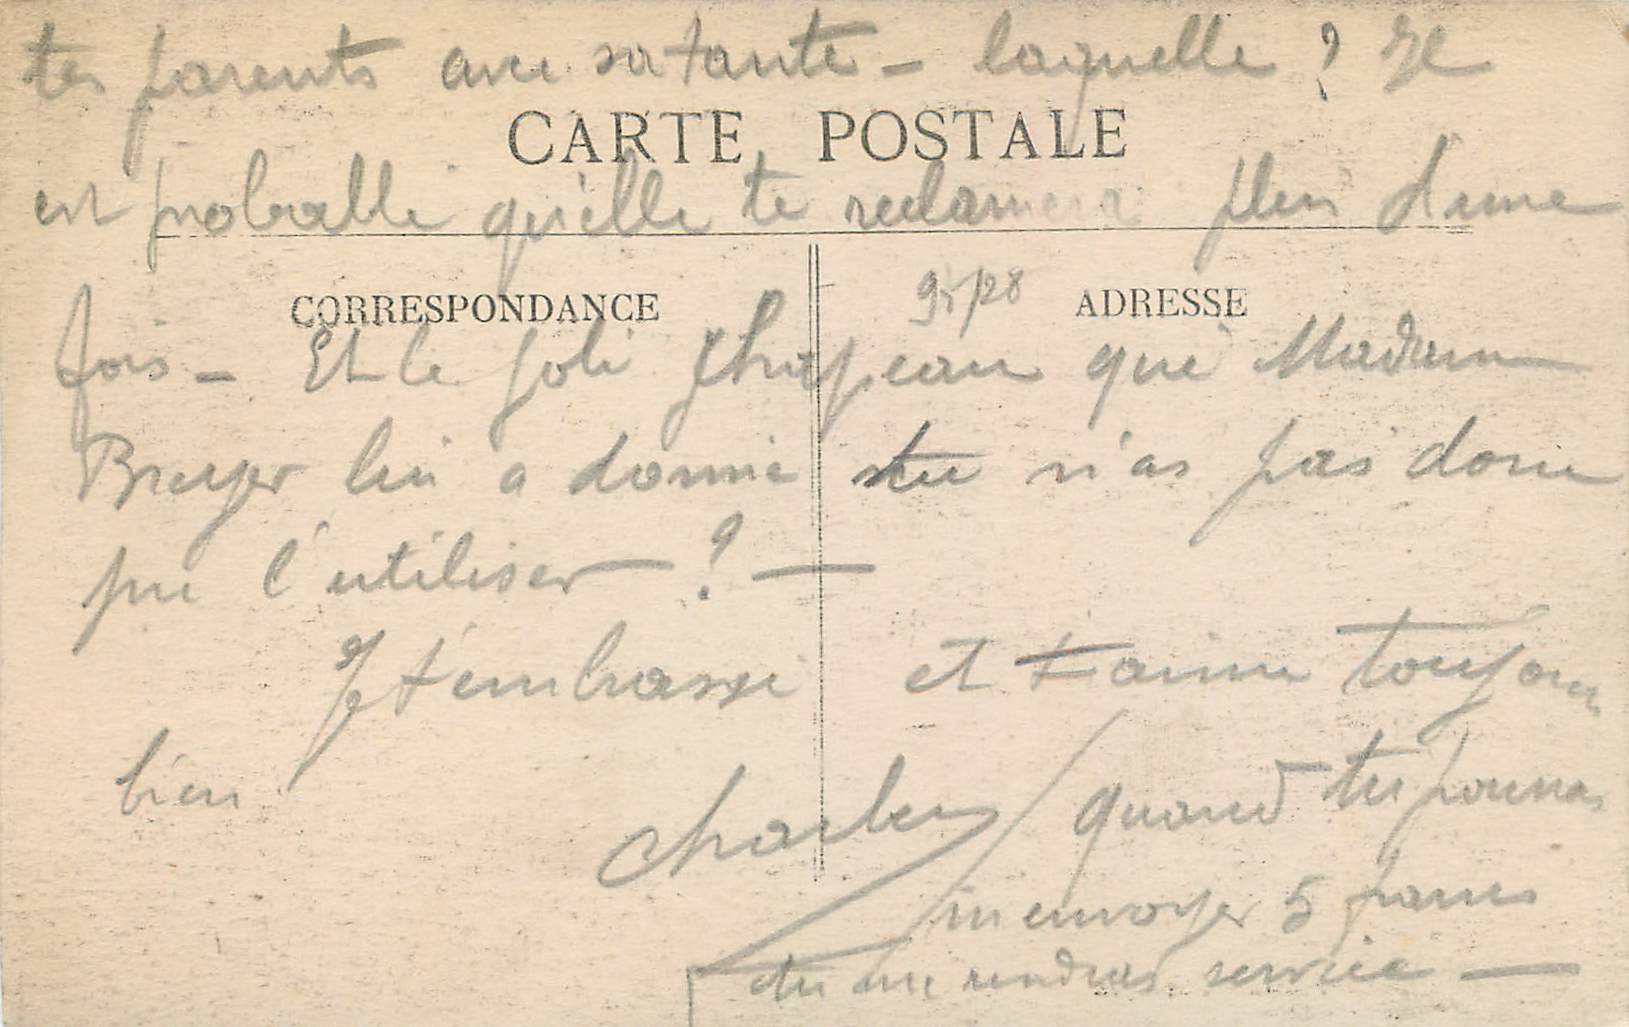 tes parents avec sa tante – laquelle ? Il
CARTE POSTALE
est probable qu'elle te reclamera plus d'une
CORRESPONDANCE
ADRESSE
fois – Et le joli chapeau que Madame
Bruyer lui a donné tu n'as pas donc
pu l'utiliser ? —
Je t'embrasse et t'aime toujours
bien
Charles
quand tu pourras
m'envoyer 5 francs
tu me rendras service —